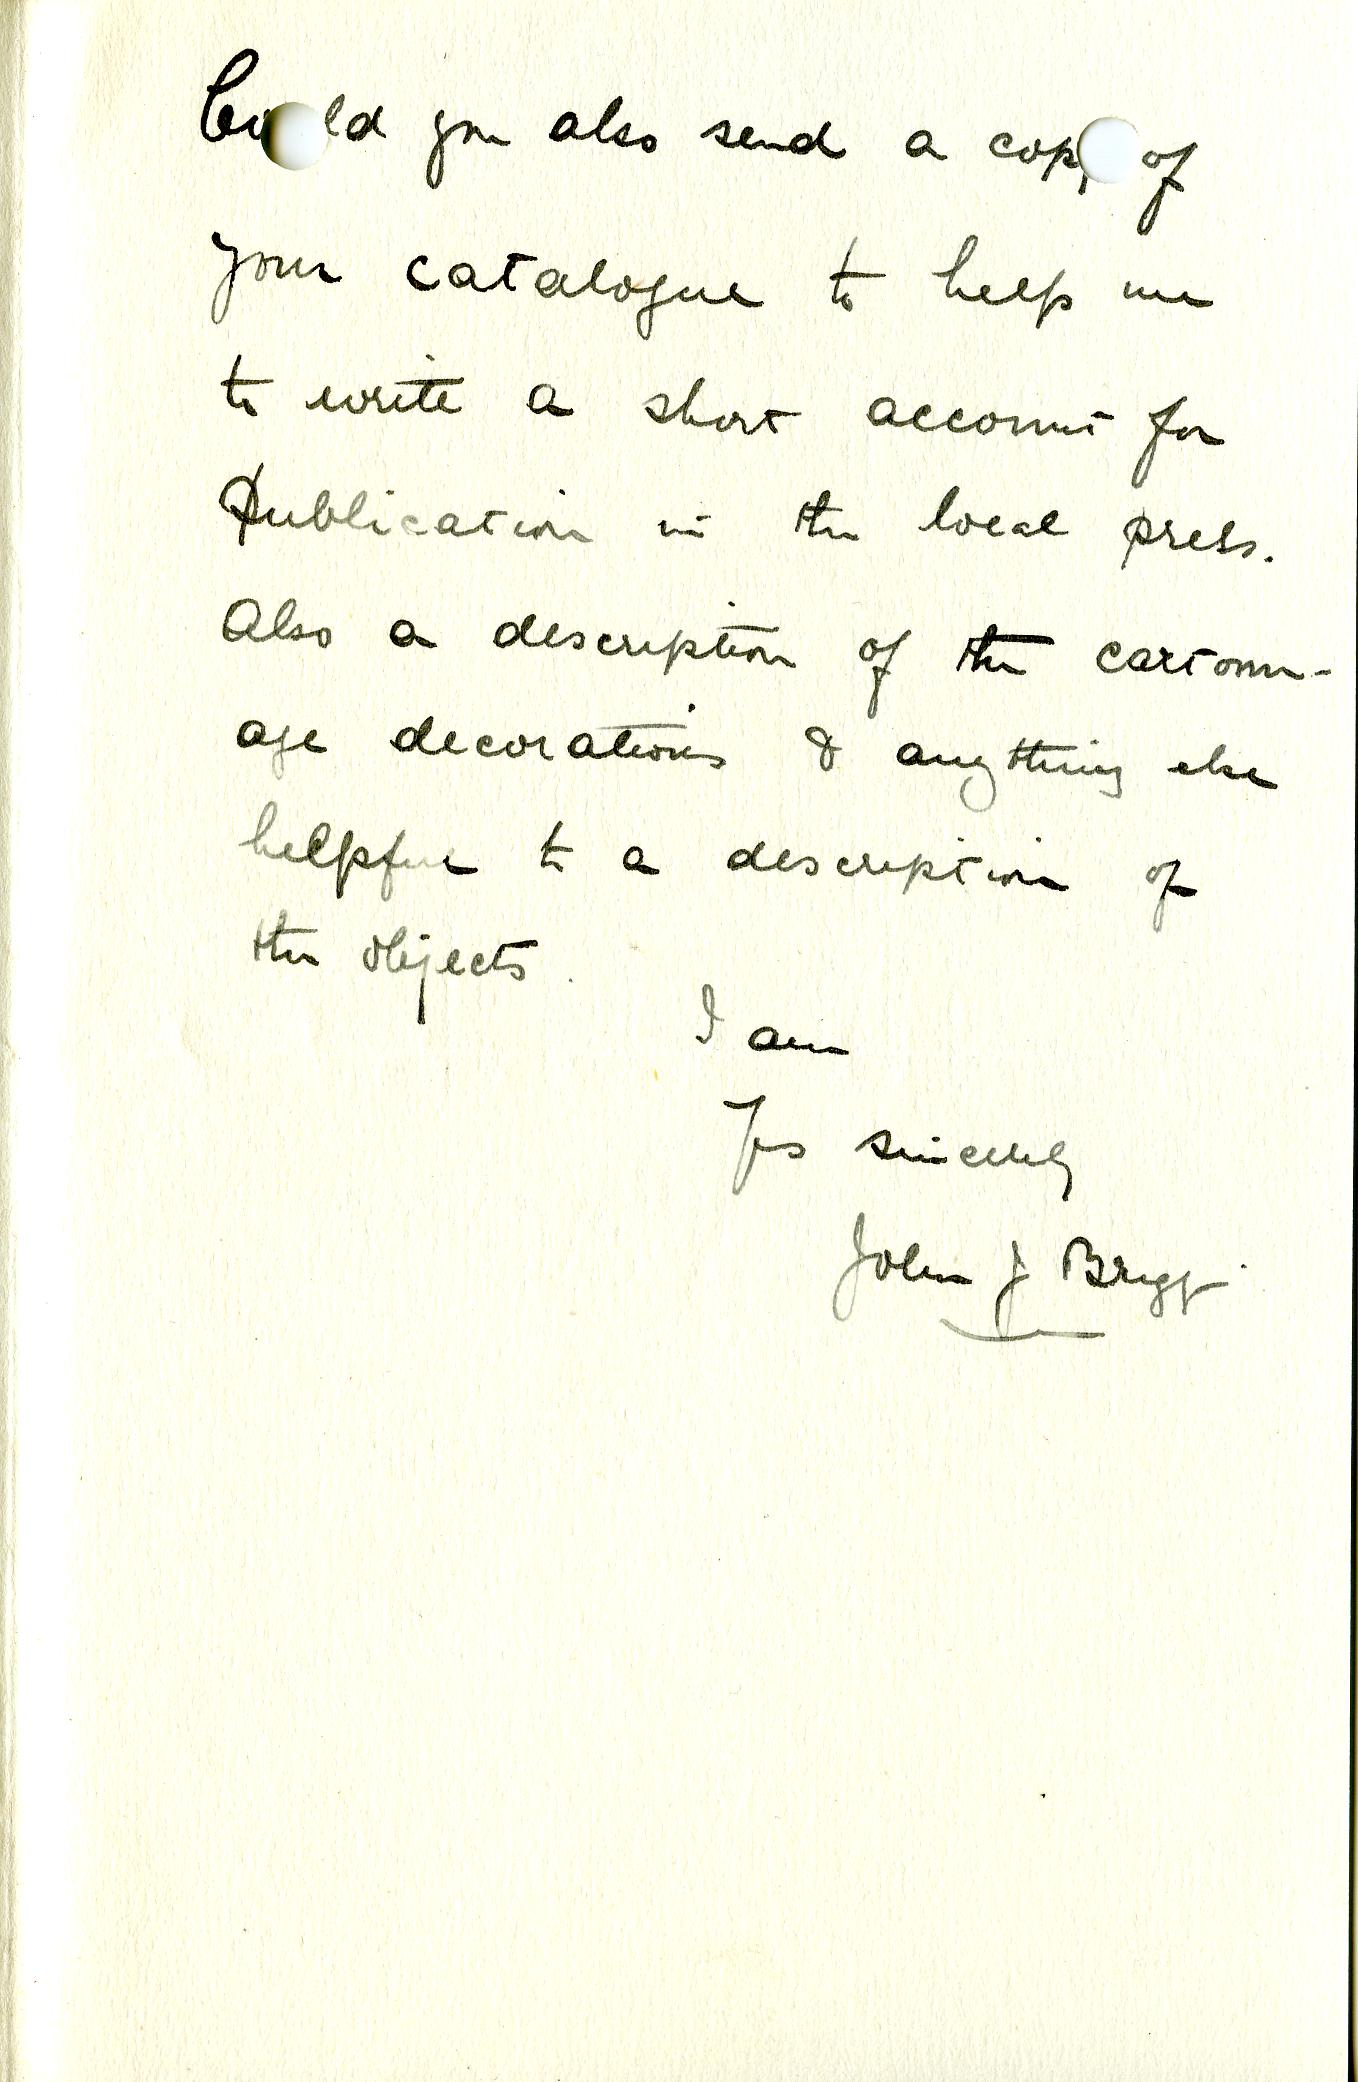 Could you also send a copy of
your catalogue to help me
to write a short account for
publication in the local press.
Also a description of the cartonn-
age decorations & anything else
helpful to a description of
the objects.
I am
Yrs sincerely
John J Brigg